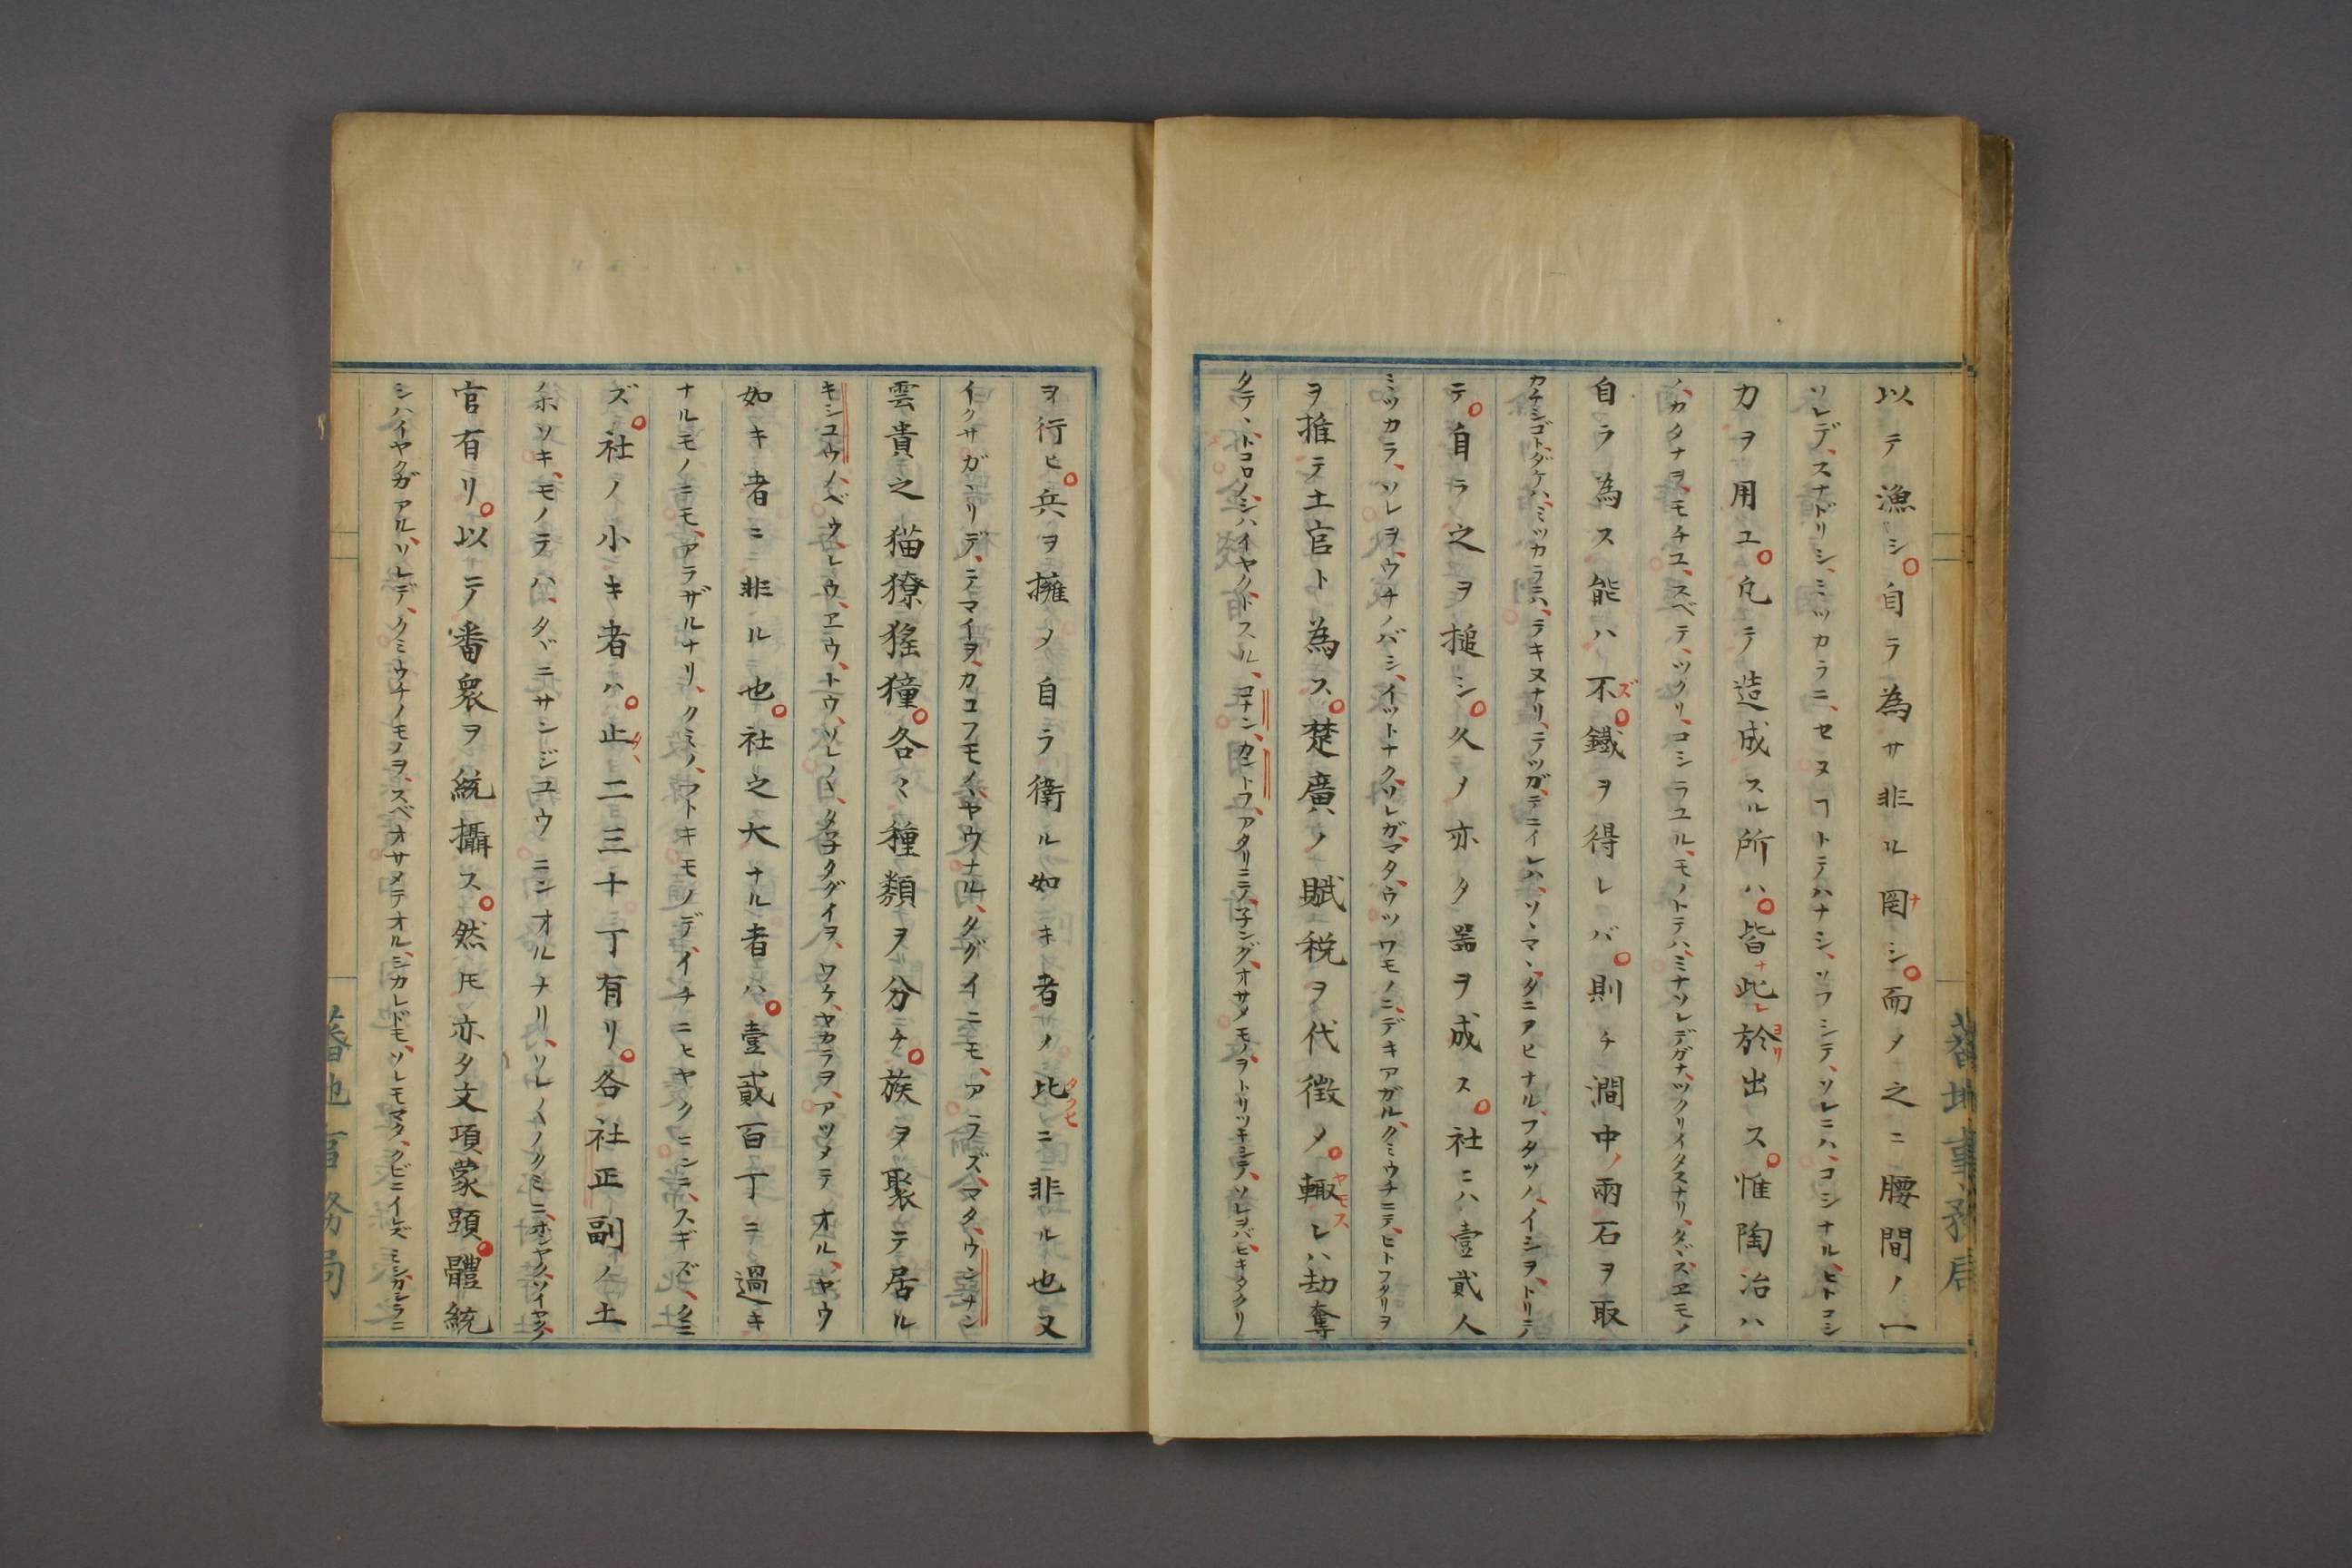 以テ漁シ自ラ為サ非ル罔シ而〆之ニ腰間ノ一
ソレデ、スナドリシ、ミツカラニ、セヌコトテハナシ、ソフシテ、ソレニハ、コシナル、ヒトコシ
力ヲ用ユ凡テ造成スル所ハ皆此於出ス惟陶冶ハ
ノ、カタナヲ、モチユ、スベテ、ツクリ、コシラユル、モノトテハ、ミナソレデガナ、ツクリイタスナリ、タヾ、スヱモノ
自ラ為ス能ハ不鐵ヲ得レバ則チ澗中ノ兩石ヲ取
カナシゴト、ダケハ、ミツカラニハ、ラキヌナリ、テツガ、テニイレハ、ソヽマヽ、タニアヒナル、フタツノ、イシヲ、トリテ
テ自ラ之ヲ搥シ久〆亦タ器ヲ成ス社ニハ壹貳人
ミツカラ、ソレヲ、ウチノバシ、イツトナク、ソレガ、マタ、ウツワモノニ、デキアガル、クミウチニテ、ヒトフタリヲ
ヲ推テ土官ト為ス楚廣ノ賦税ヲ代徴〆輙レハ劫奪
タテ、トコロノ、シハイヤクト、スル、コナン、カントフ、アタリニテ、子ング、オサメモノヲ、トリツキシテ、ソレヲバ、ヒキタクリ
ヲ行ヒ兵ヲ擁〆自ラ衛ル如キ者ノ比ニ非ル也又
イクサガヽリデ、テマイヲ、カコフモノ、ヤウナル、タグイニモ、アラズ、マタ、ウンナン
雲貴之猫獠猺獞各々種類ヲ分チ族ヲ聚テ居ル
キシユウノ、ベウ、レウ、ヱウ、トウ、ソレ〳〵、タ子タグイヲ、ワケ、ヤカラヲ、アツメテ オル、ヤウ
如キ者ニ非ル也社之大ナル者ハ壹貳百丁ニ過キ
ナルモノニモ、アラザルナリ、クミノ、フトキモノデ、イチニヒヤクニンニ、スギズ、クミ
ズ社ノ小キ者ハ止二三十丁有リ各社正副ノ土
ノホソキ、モノテハ、タヾニサンジユウ ニンオルナリ、ソレ〳〵ノクミニ、オヤク、ソイヤクノ
官有リ以テ番衆ヲ統攝ス然𪜈亦タ文項蒙顕體統
シハイヤクガアル、ソレデ、クミウチノモノヲ、スベオサメテオル、シカレドモ、ソレモマタ、クビニイレズミシ、カシラニ
蕃地事務局
蕃地事務局